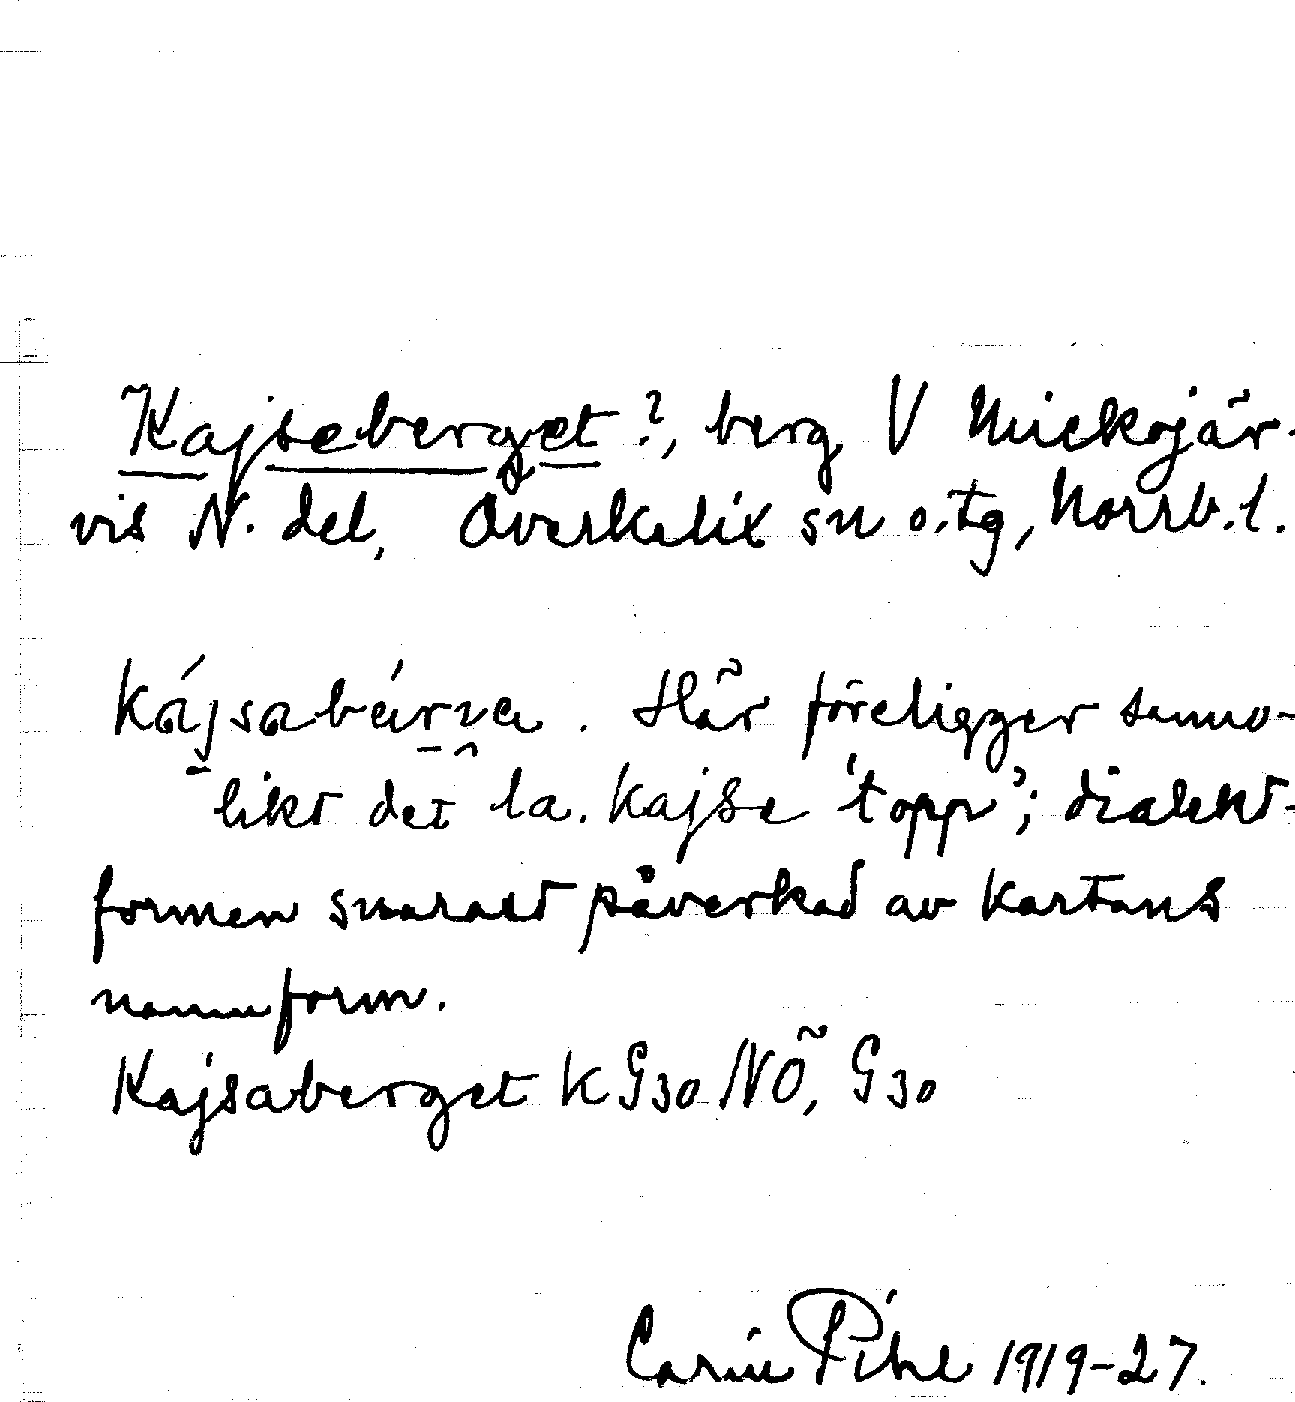 Kajseberget ?, berg V Mickojär-
vis N. del, Överkalix sn o. tg, Norrb. l.
kájsabárva . Här föreligger sanno-
likt det la. kajse 'topp'; dialekt-
formen snarast påverkad av kartans
namnform.
Kajsaberget K G30 NÖ, G30
Carin Pihl 1919-27.